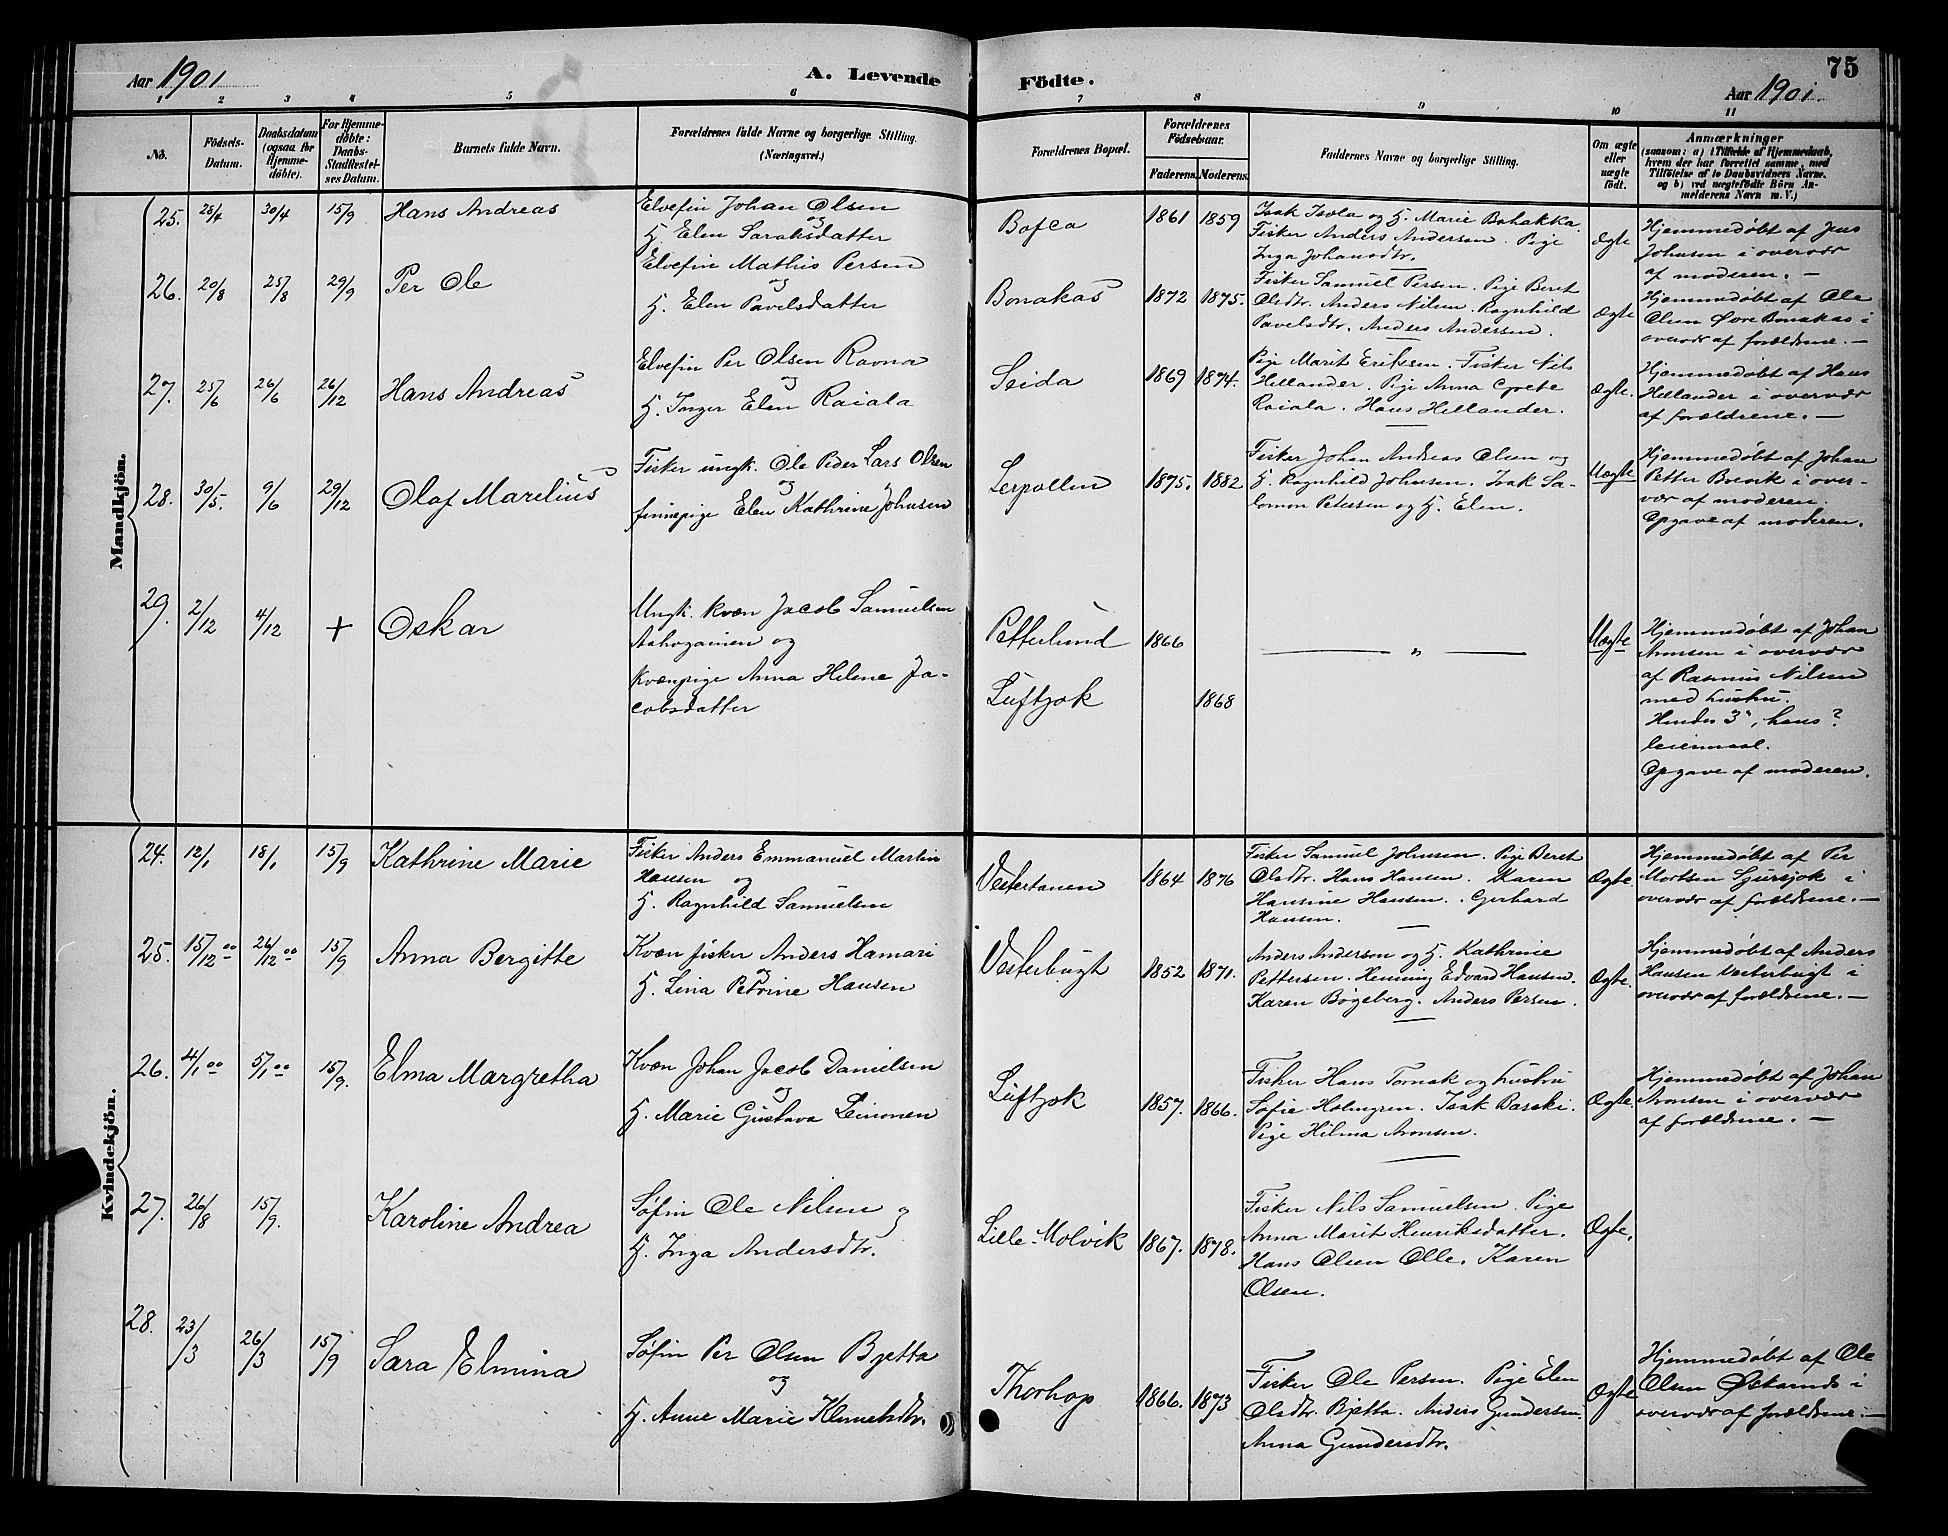 Aar 1901
A. Levende
Födte.
75
Aar 1901.
1 2 3 4 5 6 7 8 9 10 11
No.
Födsels-
Datum.
Daabsdatum
(ogsaa for
Hjemme-
döbte).
For Hjemme-
döbte:
Daabs-
Stadfæstel-
ses Datum.
Barnets fulde Navn.
Forældrenes fulde Navne og borgerlige Stilling.
(Næringsvei.)
Forældrenes Bopæl.
Forældrenes
Födselsaar.
Faderens. Moderens.
Faddernes Navne og borgerlige Stilling.
Om ægte
eller
uægte
født.
Anmærkninger
(saasom: a) i Tilfælde af Hjemmedaab,
hvem der har forrettet samme, med
Tilföielse af to Daabsvidners Navne.
og b) ved uægtefödte Börn An-
melderens Navn m. V.)
Mandkjön.
25. 25/4 30/4 15/9 Hans Andreas
Elvefin Johan Olsen
og
H. Elen Saraksdatter
Bofca
1861 1859
Isak Isola og H. Marie Bohakka.
Fisker Anders Andersen. Pige
Inga Johansdtr.
Ægte
Hjemmedøbt af Jens
Johnsen i overvær
af moderen. —
26. 20/8 25/8 29/9 Per Ole
Elvefin Mathis Persen
og
H. Elen Pavelsdatter
Bonakas
1872 1875.
Fisker Samuel Persen. Pige Beret
Olsdtr. Anders Nilsen. Ragnhild
Pavelsdtr. Anders Andersen.
Ægte
Hjemmedøbt af Ole
Olsen Øvre Bonakas i
overvær af forældrene. —
27. 25/6 26/6 26/12 Hans Andreas
Elvefin Per Olsen Ravna
og
H. Inger Elen Raiala
Seida
1869 1874.
Pige Marit Eriksen. Fisker Nils
Hellander. Pige Anna Grete
Raiala. Hans Hellander.
Ægte.
Hjemmedøbt af Hans
Hellander i overvær
af forældrene. —
28. 30/5. 9/6 29/12 Olaf Marelius
Fisker ungk. Ole Peder Lars Olsen
og
finnepige Elen Kathrine Johnsen
Lerpollen
1875. 1882
Fisker Johan Andreas Olsen og
H. Ragnhild Johnsen. Isak Sa-
lomon Petersen og H. Elen.
Uægte
Hjemmedøbt af Johan
Petter Brevik i over-
vær af moderen.
Opgave af moderen.
29. 2/12 4/12 + Oskar
Ungk. kvæn Jacob Samuelsen
og
kvænpige Anna Helene Ja-
cobsdatter
Petterlund
1866
Luftjok
1868
— " —
Uægte
Hjemmedøbt af Johan
Aronsen i overvær
af Rasmus Nilsen
med hustru.
Hendes 3', hans ?
leiermaal.
Opgave af moderen.
Kvindekjön.
24. 12/1 18/1 15/9 Kathrine Marie
Fisker Anders Emmanuel Martin
Hansen og
H. Ragnhild Samuelsen
Vestertanen
1864 1876
Fisker Samuel Johnsen. Pige Beret
Olsdtr. Hans Hansen. Karen
Hansine Hansen. Gerhard
Hansen.
Ægte.
Hjemmedøbt af Per
Mortsen i
overvær af forældrene. —
25. 15/12 00 26/12 00 15/9 Anna Bergitte
Kvæn fisker Anders Hamari
og
H. Lina Petrine Hansen
Vesterbugt
1852 1871.
Anders Anderson og H. Kathrine
Pettersen. Henning Edvard Hansen.
Karen Bogeberg. Anders Persen.
Ægte.
Hjemmedøbt af Anders
Hansen Vesterbugt i
overvær af forældrene. —
26. 4/1 00 5/1 00 15/9. Elma Margretha
Kvæn Johan Jacob Danielsen
og
H. Marie Gustava Leinonen
Luftjok
1857. 1866.
Fisker Hans Tornak og hustru
Sofie Holmgren. Isak Basski.
Pige Hilma Aronsen.
Ægte.
Hjemmedøbt af Johan
Aronsen i overvær
af forældrene. —
27. 26/8 15/9. Karoline Andrea
Søfin Ole Nilsen og
H. Inga Andersdtr.
Lille-Molvik
1867. 1878.
Fisker Nils Samuelsen. Pige
Anna Marit Henriksdatter.
Hans Olsen Olle. Karen
Olsen.
Ægte.
28. 23/3 26/3 15/9 Sara Elmina
Søfin Per Olsen Bjetta
og
H. Anne Marie Klemetsdtr.
Thorhop
1866. 1873
Fisker Ole Persen. Pige Elen
Olsdtr. Bjetta. Anders Gundersen.
Anna Gundersdtr.
Ægte
Hjemmedøbt af Ole
Olsen i
overvær af forældrene. —